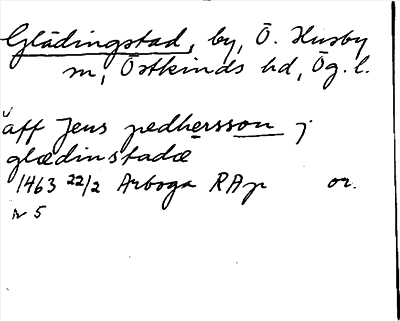 Glädingstad, by, Ö. Husby
sn, Östkinds hd, Ög. l.
aff Jens pedhersson j
glædinstadæ
1463 22/2 Arboga RAp or.
nr 5